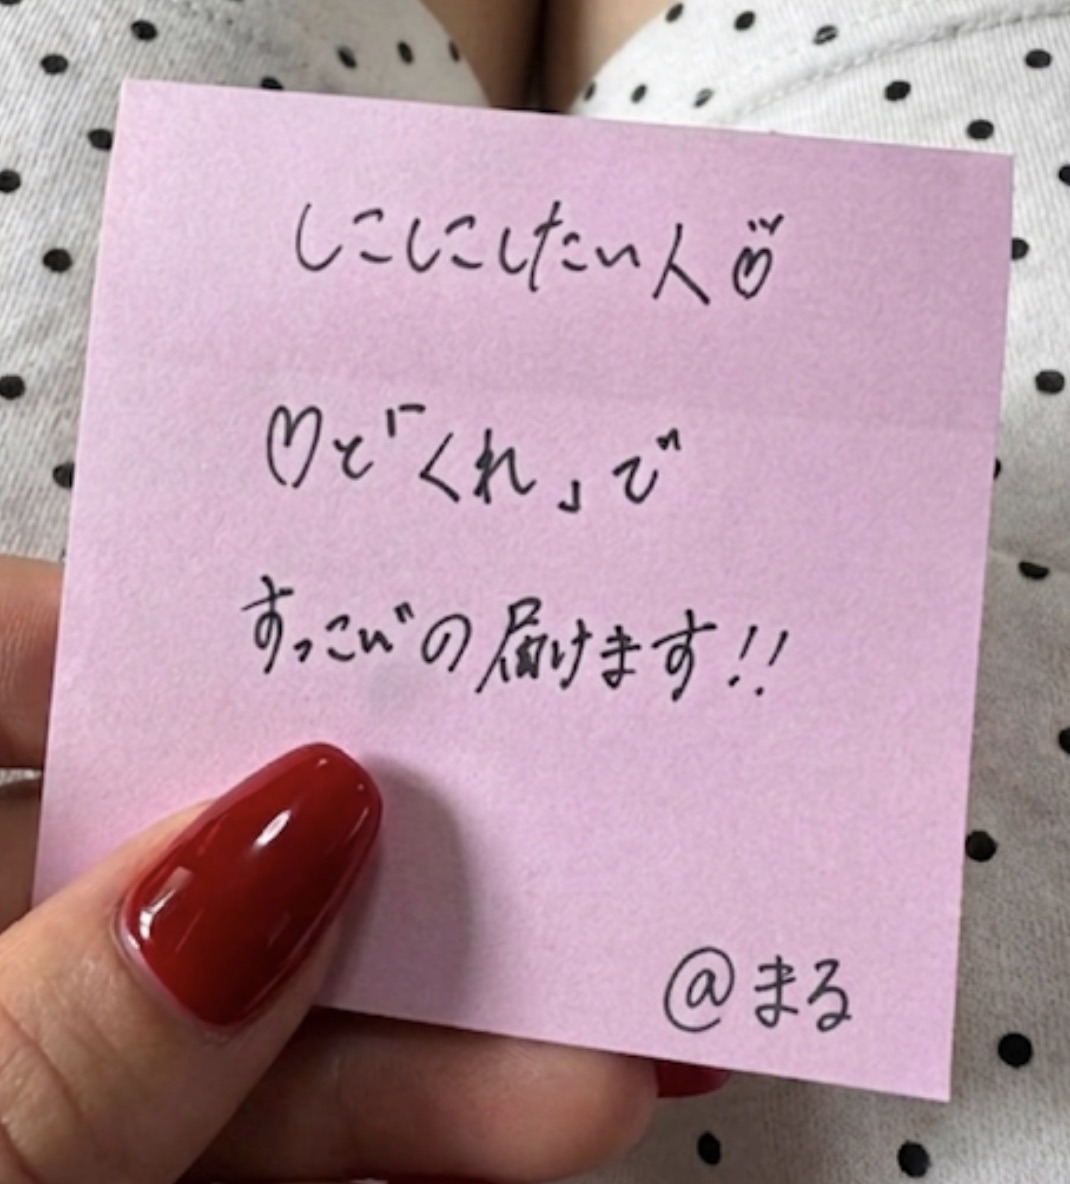 しこしこしたい人♡
♡と「くれ」で
すっごいの届けます!!
@まる